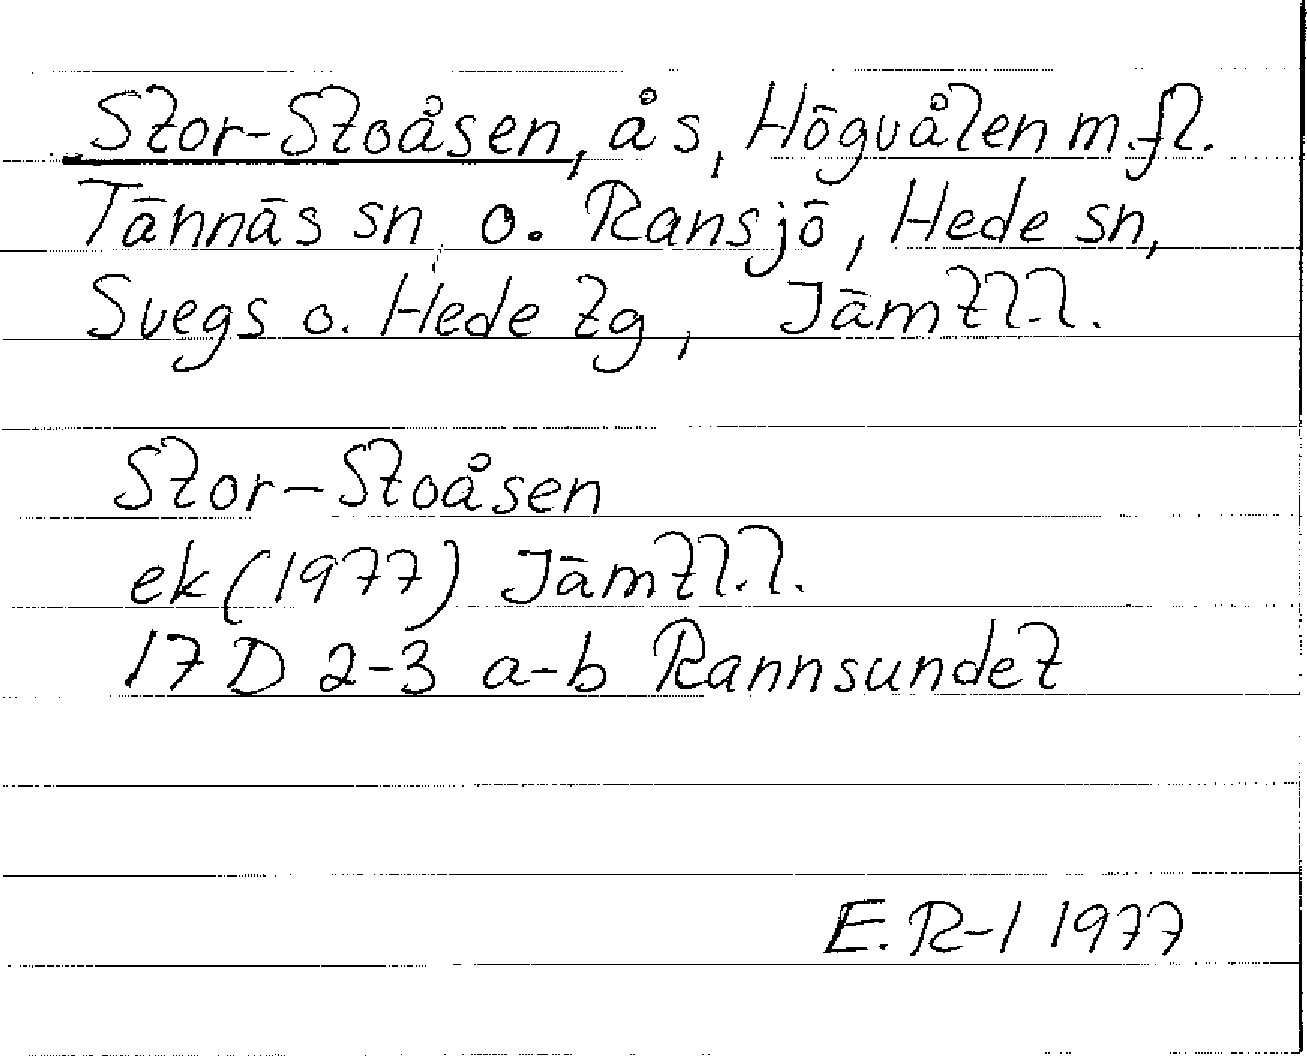 Stor-Stoåsen, ås, Högvålen m.fl.
Tännäs sn, o. Ransjö, Hede sn,
Svegs o. Hede tg, Jämtl.l.
Stor-Stoåsen
ek (1977) Jämtl.l.
17 D 2-3 a-b Rannsundet
E. R-l 1977